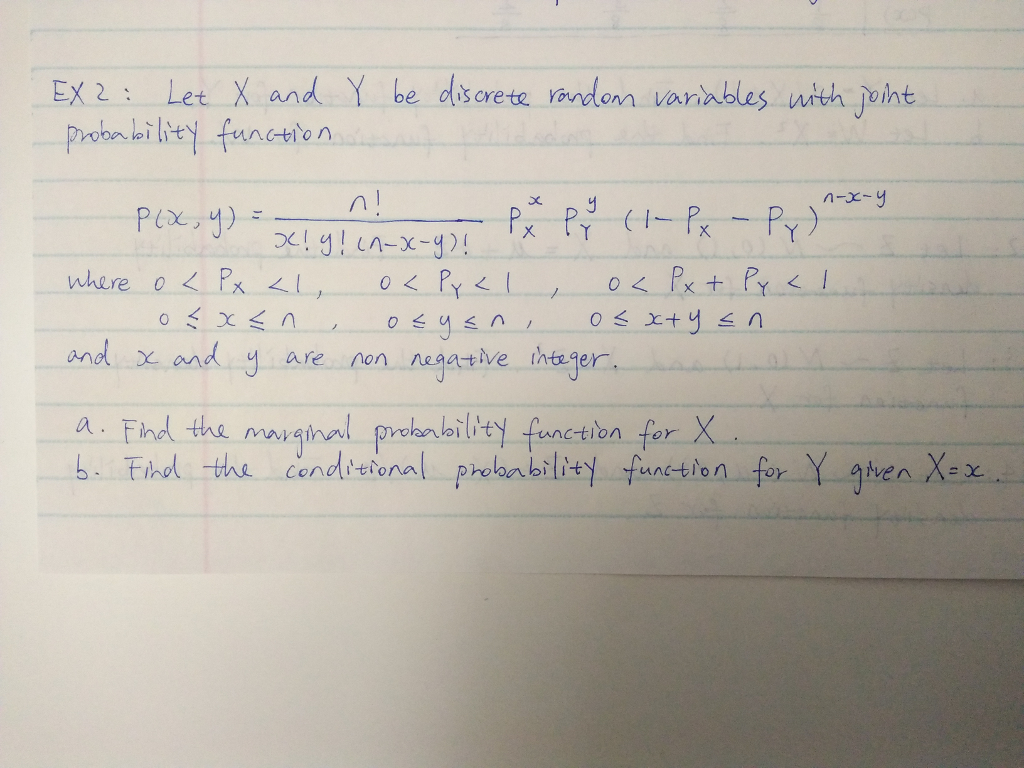 EX 2 : Let X and Y be discrete random variables with joint
probability function
P(x, y) = n! / x! y! (n-x-y)! P_X^x P_Y^y (1 - P_X - P_Y)^(n-x-y)
where 0 < P_X < 1, 0 < P_Y < 1, 0 < P_X + P_Y < 1
0 ≤ x ≤ n, 0 ≤ y ≤ n, 0 ≤ x+y ≤ n
and x and y are non negative integer.
a. Find the marginal probability function for X.
b. Find the conditional probability function for Y given X=x.